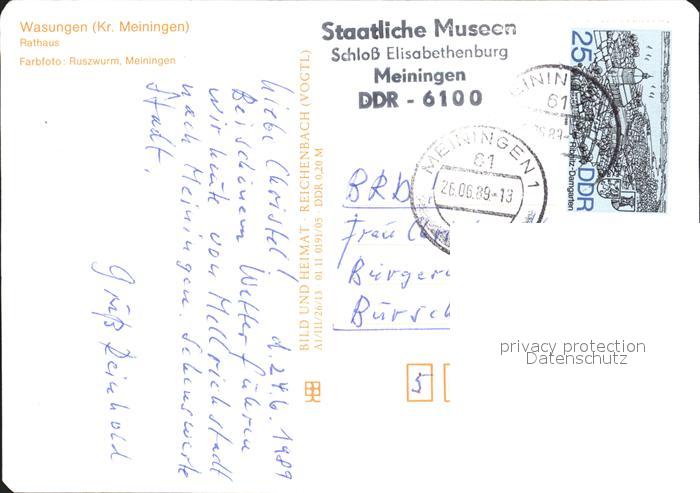 Wasungen (Kr. Meiningen)
Rathaus
Farbfoto: Ruszwurm, Meiningen
Staatliche Museen
Schloß Elisabethenburg
Meiningen
DDR - 6100
MEININGEN 1
61
26.06.89-13
25
DDR
BILD UND HEIMAT · REICHENBACH (VOGTL)
A1/III/26/13 01 11 0191/05 · DDR 0,20 M
d. 24.6.1989
Liebe Christel!
Bei schönem Wetter fuhren
wir heute von Mellrichstadt
nach Meiningen. Sehenswerte
Stadt.
Gruß Reinhold
BRD
Frau
Bürger
Bürsch
5
privacy protection
Datenschutz